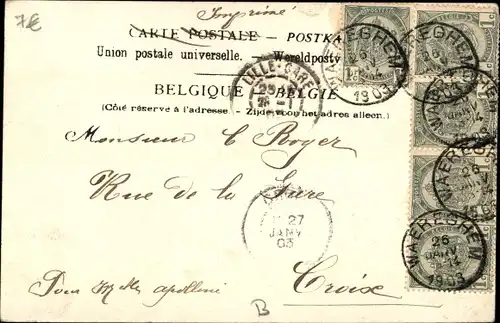 7€
Imprimé
CARTE POSTALE — POSTKA
Union postale universelle. — Wereldpostv
BELGIQUE — BELGIE
(Côté réservé à l'adresse. — Zijde voor het adres alleen.)
LILLE-GARE
WAEREGHEM
1903
WAEREGHEM
26
JANV
1903
WAEREGHEM
26
JANV
14
1903
Monsieur C Boyer
Rue de la Gare
27
JANV
03
Croix
Pour Melle
B